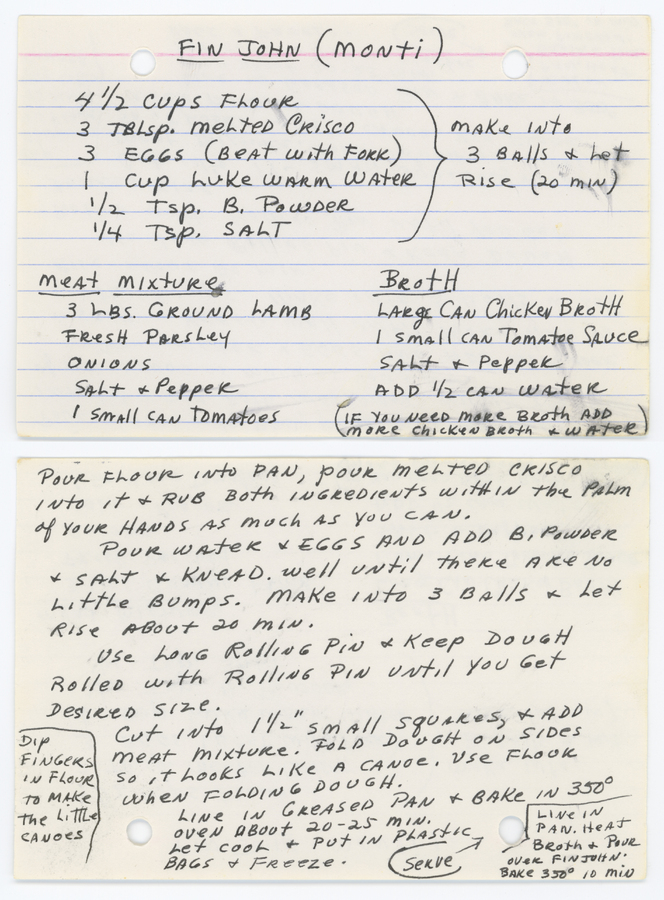 FIN JOHN (MONTI)
4 1/2 CUPS FLOUR
3 TBLSP. MELTED CRISCO
3 EGGS (BEAT WITH FORK)
1 CUP LUKE WARM WATER
1/2 TSP. B. POWDER
1/4 TSP. SALT
MAKE INTO
3 BALLS & LET
RISE (20 MIN)
MEAT MIXTURE
3 LBS. GROUND LAMB
FRESH PARSLEY
ONIONS
SALT & PEPPER
1 SMALL CAN TOMATOES
BROTH
LARGE CAN CHICKEN BROTH
1 SMALL CAN TOMATOE SAUCE
SALT & PEPPER
ADD 1/2 CAN WATER
(IF YOU NEED MORE BROTH ADD
MORE CHICKEN BROTH & WATER)
POUR FLOUR INTO PAN, POUR MELTED CRISCO
INTO IT & RUB BOTH INGREDIENTS WITHIN THE PALM
OF YOUR HANDS AS MUCH AS YOU CAN.
POUR WATER & EGGS AND ADD B. POWDER
& SALT & KNEAD. WELL UNTIL THERE ARE NO
LITTLE BUMPS. MAKE INTO 3 BALLS & LET
RISE ABOUT 20 MIN.
USE LONG ROLLING PIN & KEEP DOUGH
ROLLED WITH ROLLING PIN UNTIL YOU GET
DESIRED SIZE.
CUT INTO 1 1/2" SMALL SQUARES, & ADD
MEAT MIXTURE. FOLD DOUGH ON SIDES
SO IT LOOKS LIKE A CANOE. USE FLOUR
WHEN FOLDING DOUGH.
LINE IN GREASED PAN & BAKE IN 350°
OVEN ABOUT 20-25 MIN.
LET COOL & PUT IN PLASTIC
BAGS & FREEZE.
DIP
FINGERS
IN FLOUR
TO MAKE
THE LITTLE
CANOES
SERVE
LINE IN
PAN. HEAT
BROTH & POUR
OVER FINJOHN.
BAKE 350° 10 MIN